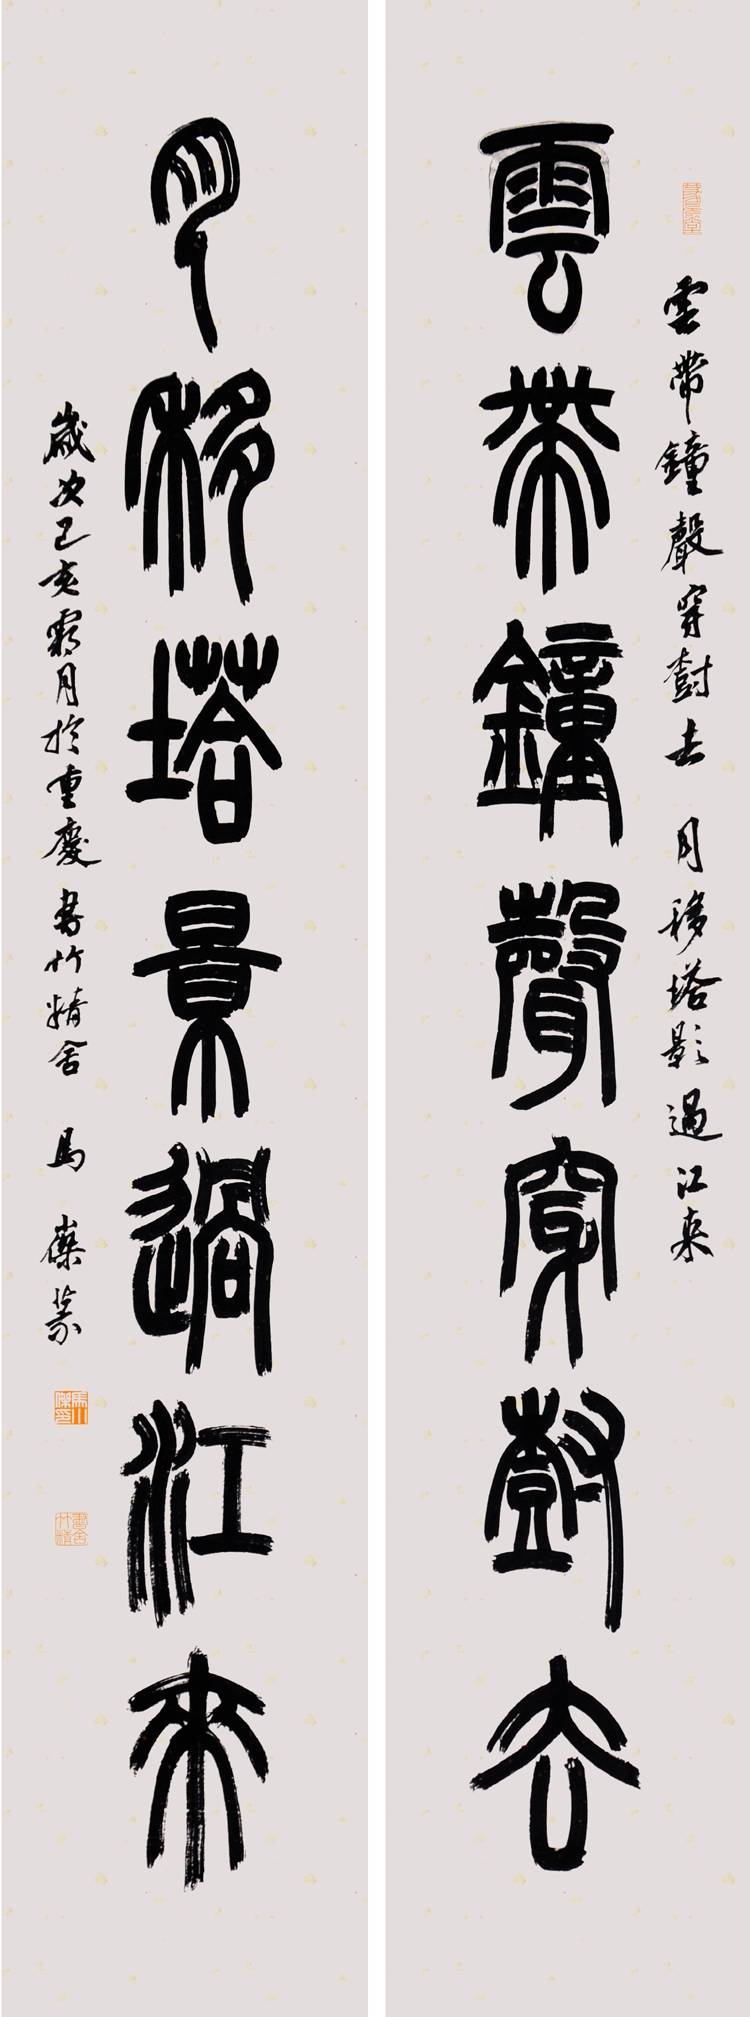 雲帶鐘聲穿樹去　月移塔影過江來
雲帶鐘聲穿樹去
月移塔景過江來
歲次己亥霜月於重慶書竹精舍　馬傑篆